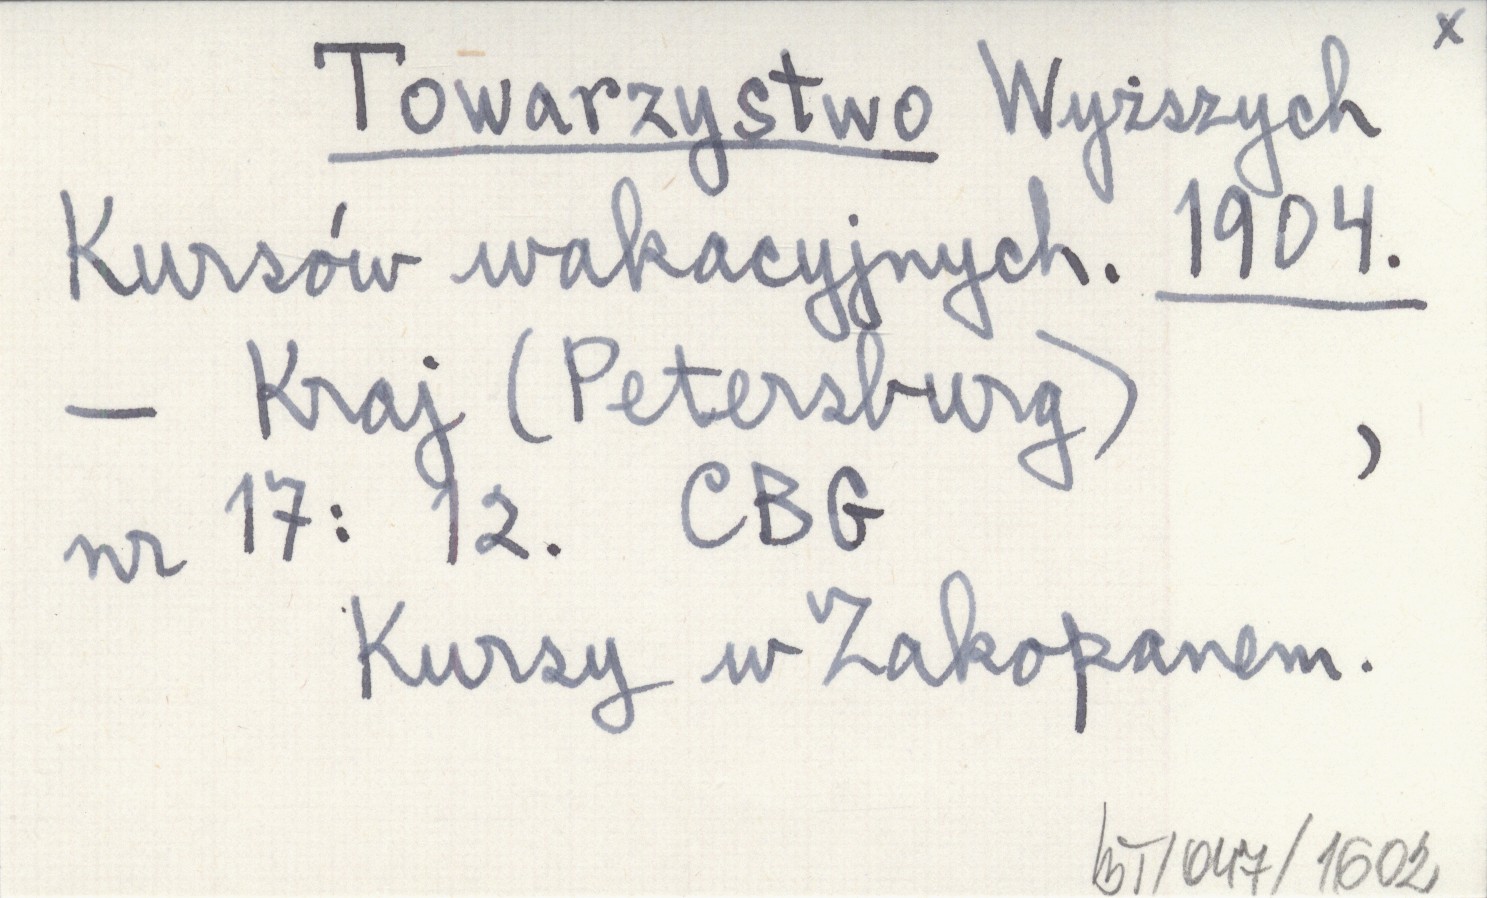 x
Towarzystwo Wyższych
Kursów wakacyjnych. 1904.
— Kraj (Petersburg) ,
nr 17: 12. CBG
Kursy w Zakopanem.
BT/047/1602